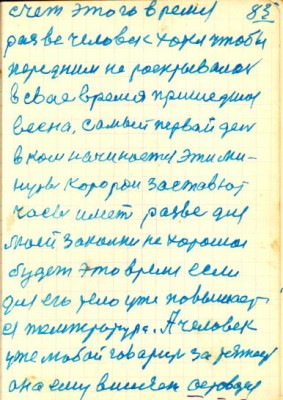 счет этого время 85
разве человек хотя чтобы
перед ним не роскрывалос
в свае время пришедшоя
весна, самый первай ден
в ком начинается эти ми-
нуты которои заставют
часы имет разве для
моей законки не хорошое
будет это время если
для его тело уже повышает-
ся температура. А человек
уже мабой говарит за
она ему